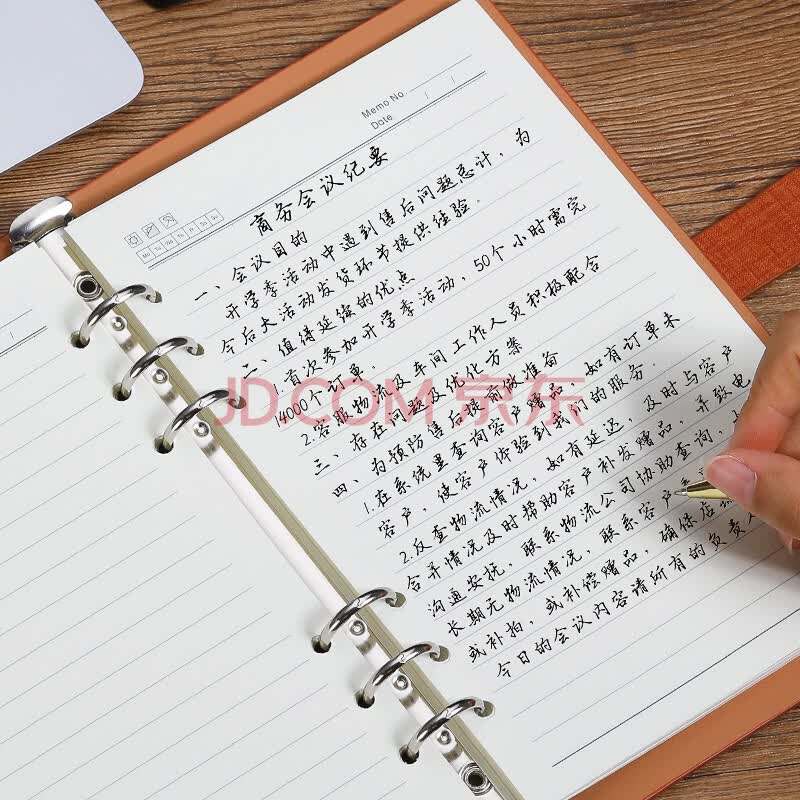 Memo No.
Date
Mo Tu We Th Fr Sa Su
商务会议纪要
一、会议目的
开学季活动中遇到售后问题总计，为
今后大活动发货环节提供经验。
二、值得延续的优点
1.首次参加开学季活动，50个小时需完
14000个订单.
2.客服物流及车间工作人员积极配合
三、存在问题及优化方案
四、为预防售后提前做准备
1.在系统里查询客户赠品，如有订单未
客户，使客户体验到我们的服务.
2.反查物流情况，如有延迟，及时与客户
合并情况及时帮助客户补发赠品，并致电
沟通安抚，联系物流公司协助查询，
长期无物流情况，联系客户
或补拍，或补偿赠品，确保店
今日的会议内容请所有的负责人
JD.COM 京东